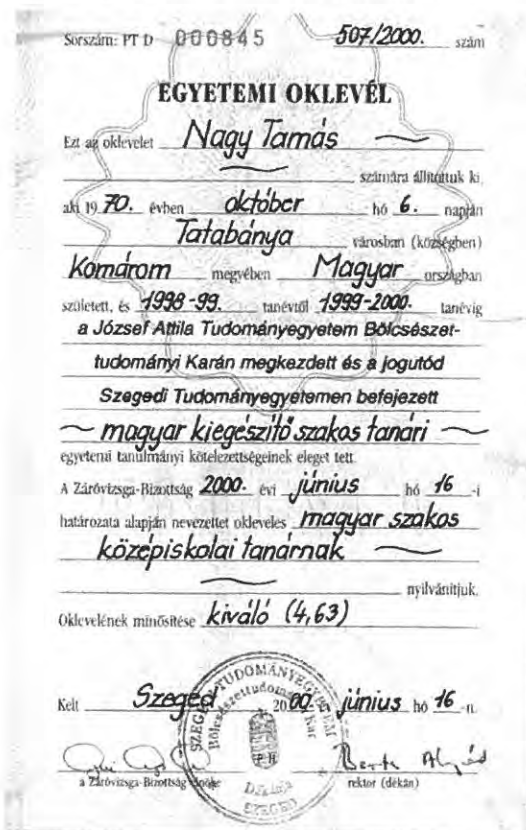 Sorszám: PT D 000845 507/2000. szám
EGYETEMI OKLEVÉL
Ezt az oklevelet Nagy Tamás
számára állítottuk ki,
aki 1970. évben október hó 6. napján
Tatabánya városban (községben)
Komárom megyében Magyar országban
született, és 1998-99. tanévtől 1999-2000. tanévig
a József Attila Tudományegyetem Bölcsészet-
tudományi Karán megkezdett és a jogutód
Szegedi Tudományegyetemen befejezett
~ magyar kiegészítő szakos tanári ~
egyetemi tanulmányi kötelezettségeinek eleget tett.
A Záróvizsga-Bizottság 2000. évi június hó 16 -i
határozata alapján nevezettet okleveles magyar szakos
középiskolai tanárnak
nyilvánítjuk.
Oklevelének minősítése kiváló (4,63)
Kelt Szeged 2000. június hó 16 -n.
SZEGEDI TUDOMÁNYEGYETEM
Bölcsészettudományi Kar
P.H.
Dékánja
SZEGED
a Záróvizsga-Bizottság elnöke rektor (dékán)